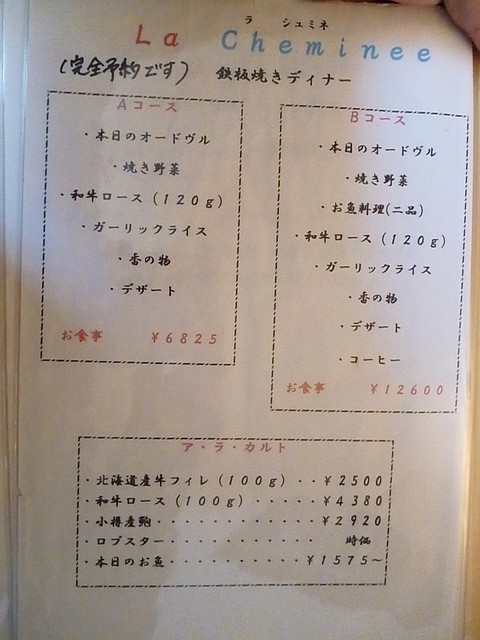 ラ シュミネ
La Cheminee
(完全予約です) 鉄板焼きディナー
Aコース
・本日のオードヴル
・焼き野菜
・和牛ロース(120g)
・ガーリックライス
・香の物
・デザート
お食事 ¥6825
Bコース
・本日のオードヴル
・焼き野菜
・お魚料理(二品)
・和牛ロース(120g)
・ガーリックライス
・香の物
・デザート
・コーヒー
お食事 ¥12600
ア・ラ・カルト
・北海道産牛フィレ(100g)・・¥2500
・和牛ロース(100g)・・・・・¥4380
・小樽産鮑・・・・・・・・・・・・¥2920
・ロブスター・・・・・・・・・・・・ 時価
・本日のお魚・・・・・・・・・・・¥1575～